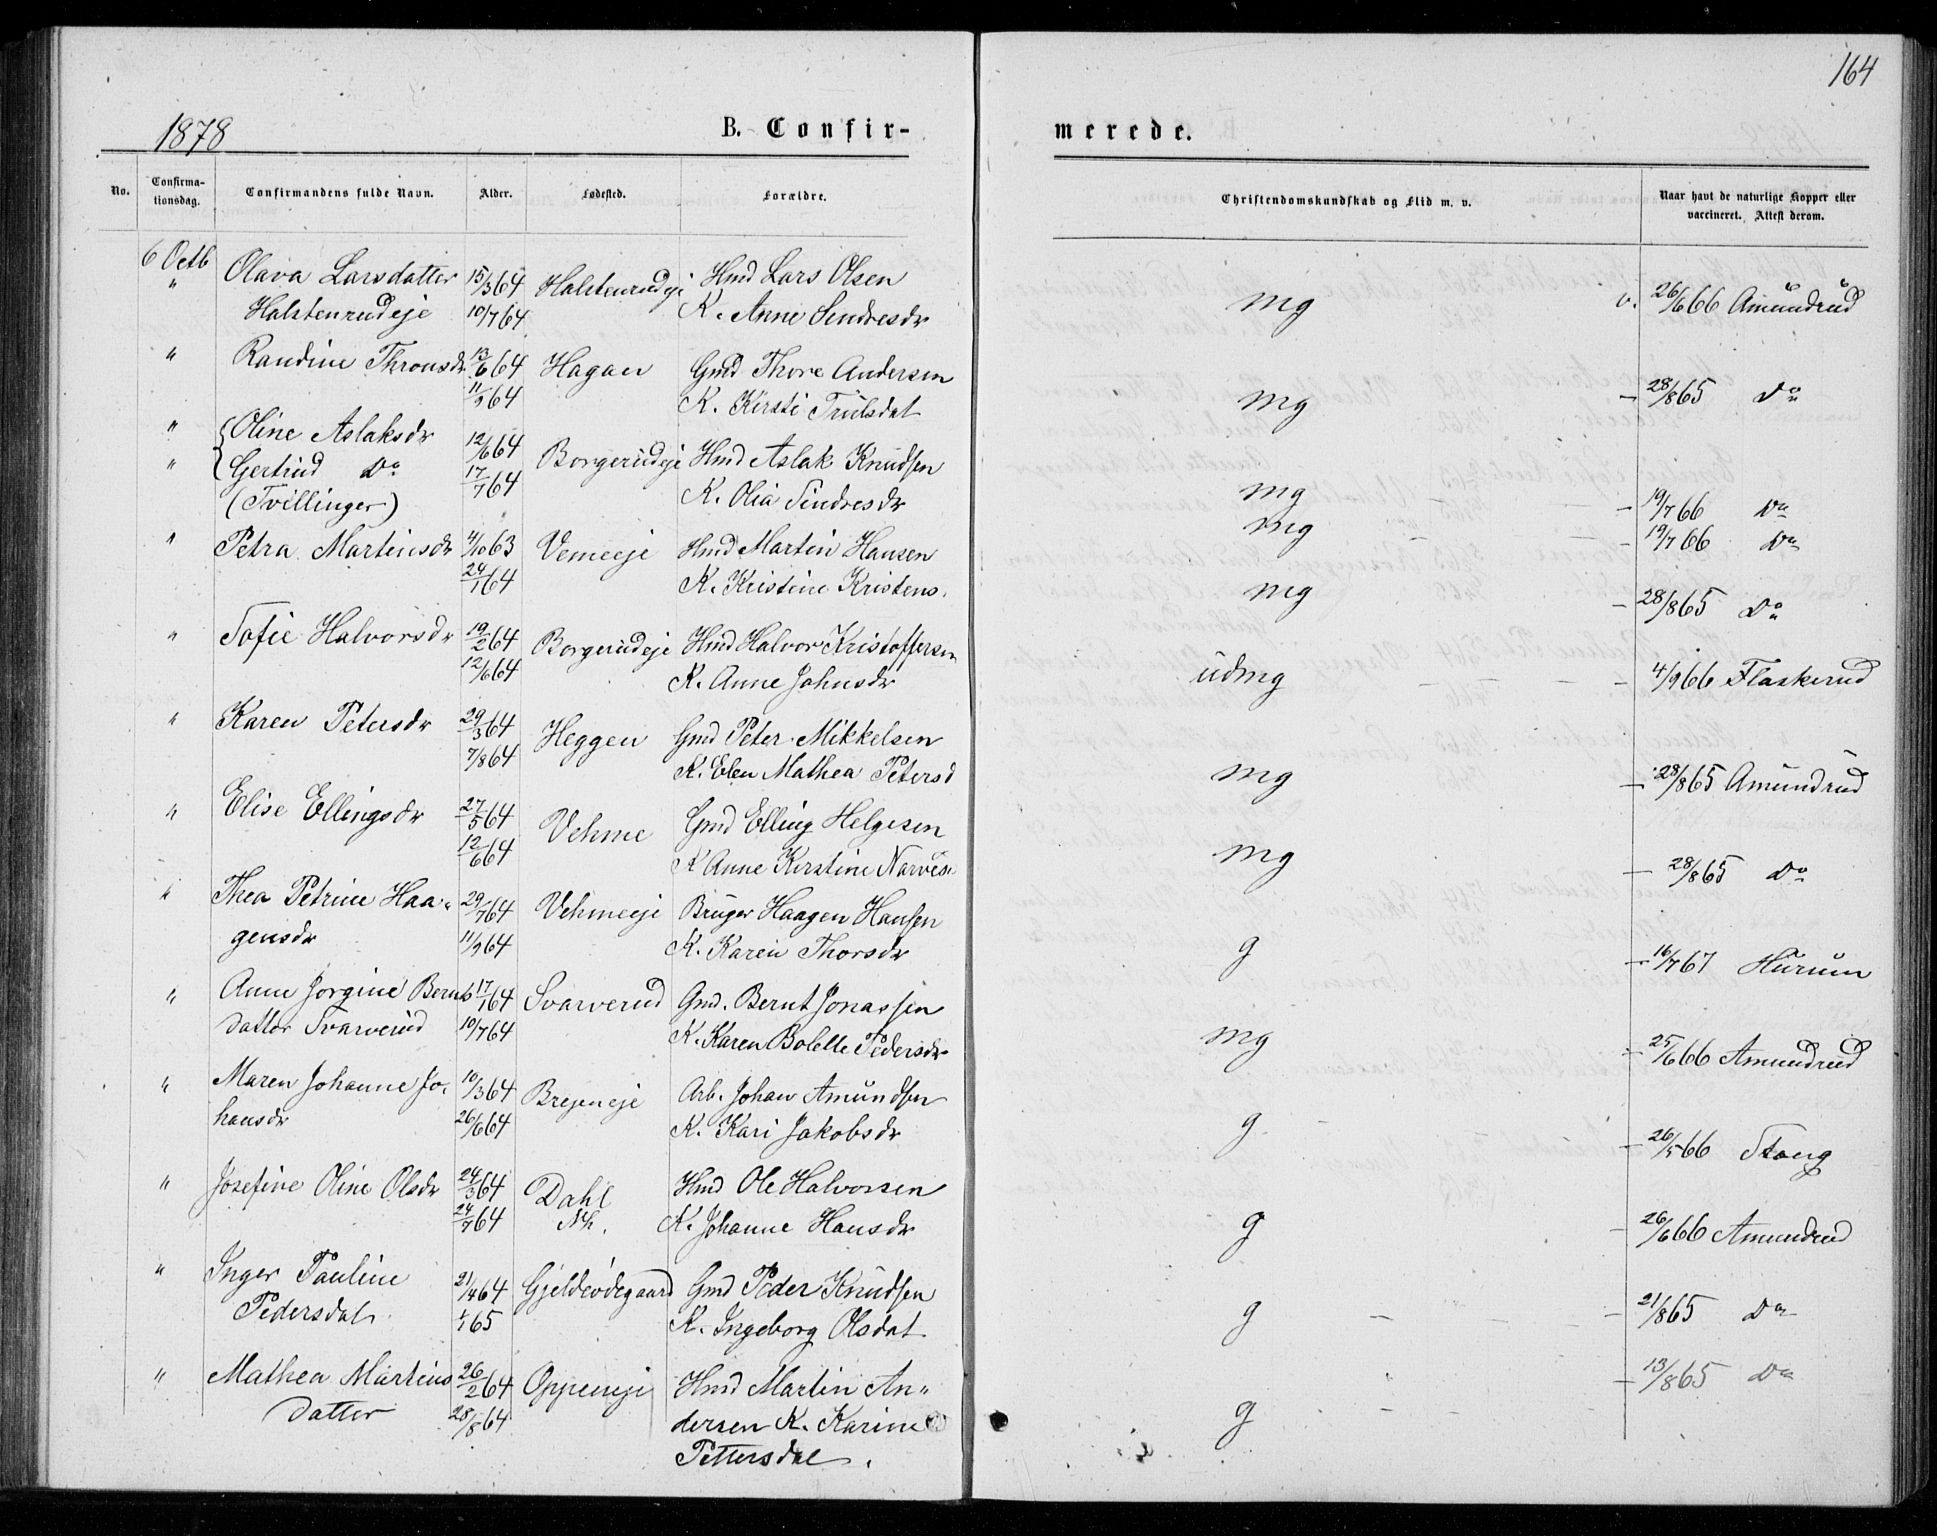 164
1878
B. Confir-
merede.
No.
Confirma-
tionsdag.
Confirmandens fulde Navn.
Alder.
Fødested.
Forældre.
Christendomskundskab og Flid m. v.
Naar havt de naturlige Kopper eller
vaccineret. Attest derom.
6 Octb Olava Larsdatter 15/3 64 Halstenrudeje Hmd Lars Olsen
" Halstenrudeje 10/7 64 K. Anne Sindresdr mg v. 26/6 66 Amundrud
" Randine Thronsdr 13/6 64 Hagan Gmd Thore Andersen
11/9 64 K. Kirsti Trulsdat mg – 28/8 65 Do
" Oline Aslaksdr 12/6 64 Borgerudeje Hmd Aslak Knudsen
" Gertrud Do 17/7 64 K. Olia Sindresdr mg – 19/7 66 Do
(Tvillinger) mg 19/7 66 Do
" Petra Martinsdr 4/10 63 Vemeeje Hmd Martin Hansen
24/1 64 K. Kristine Kristens. mg – 28/8 65 Do
" Sofie Halvorsdr 19/2 64 Borgerudeje Hmd Halvor Kristoffersen
12/6 64 K. Anne Johnsdr udmg – 4/9 66 Flaskerud
" Karen Petersdr 29/3 64 Heggen Gmd Peter Mikkelsen
7/8 64 K. Elen Mathea Petersd mg – 28/8 65 Amundrud
" Elise Ellingsdr 27/5 64 Vehme Gmd Elling Helgesen
12/6 64 K Anne Kirstine Narves. mg – 28/8 65 Do
" Thea Petrine Haa- 29/7 64 Vehmeeje Bruger Haagen Hansen
gensdr 11/9 64 K. Karen Thorsdr g – 16/7 67 Hurum
" Anne Jorgine Bernts 17/1 64 Svarverud Gmd. Bernt Jonassen
datter Svarverud 10/7 64 K. Karen Bolette Pedersdr mg – 25/6 66 Amundrud
" Maren Johanne Jo- 10/3 64 Brejeneje Arb. Johan Amundsen
hansdr 26/6 64 K. Kari Jakobsdr g – 26/5 66 Stang
" Josefine Oline Olsdr 24/3 64 Dahl Hmd Ole Halvorsen
24/7 64 Nh. K. Johanne Hansdr g – 26/6 66 Amundrud
" Inger Pauline 21/4 64 Gjeldeødegaard Gmd Peder Knudsen
Pedersdat. 1/1 65 K. Ingeborg Olsdat g – 21/8 65 Do
" Mathea Martins 26/2 64 Oppeneje Hmd Martin An-
datter 28/8 64 dersen K. Karine g – 13/8 65 Do
Pettersdat.